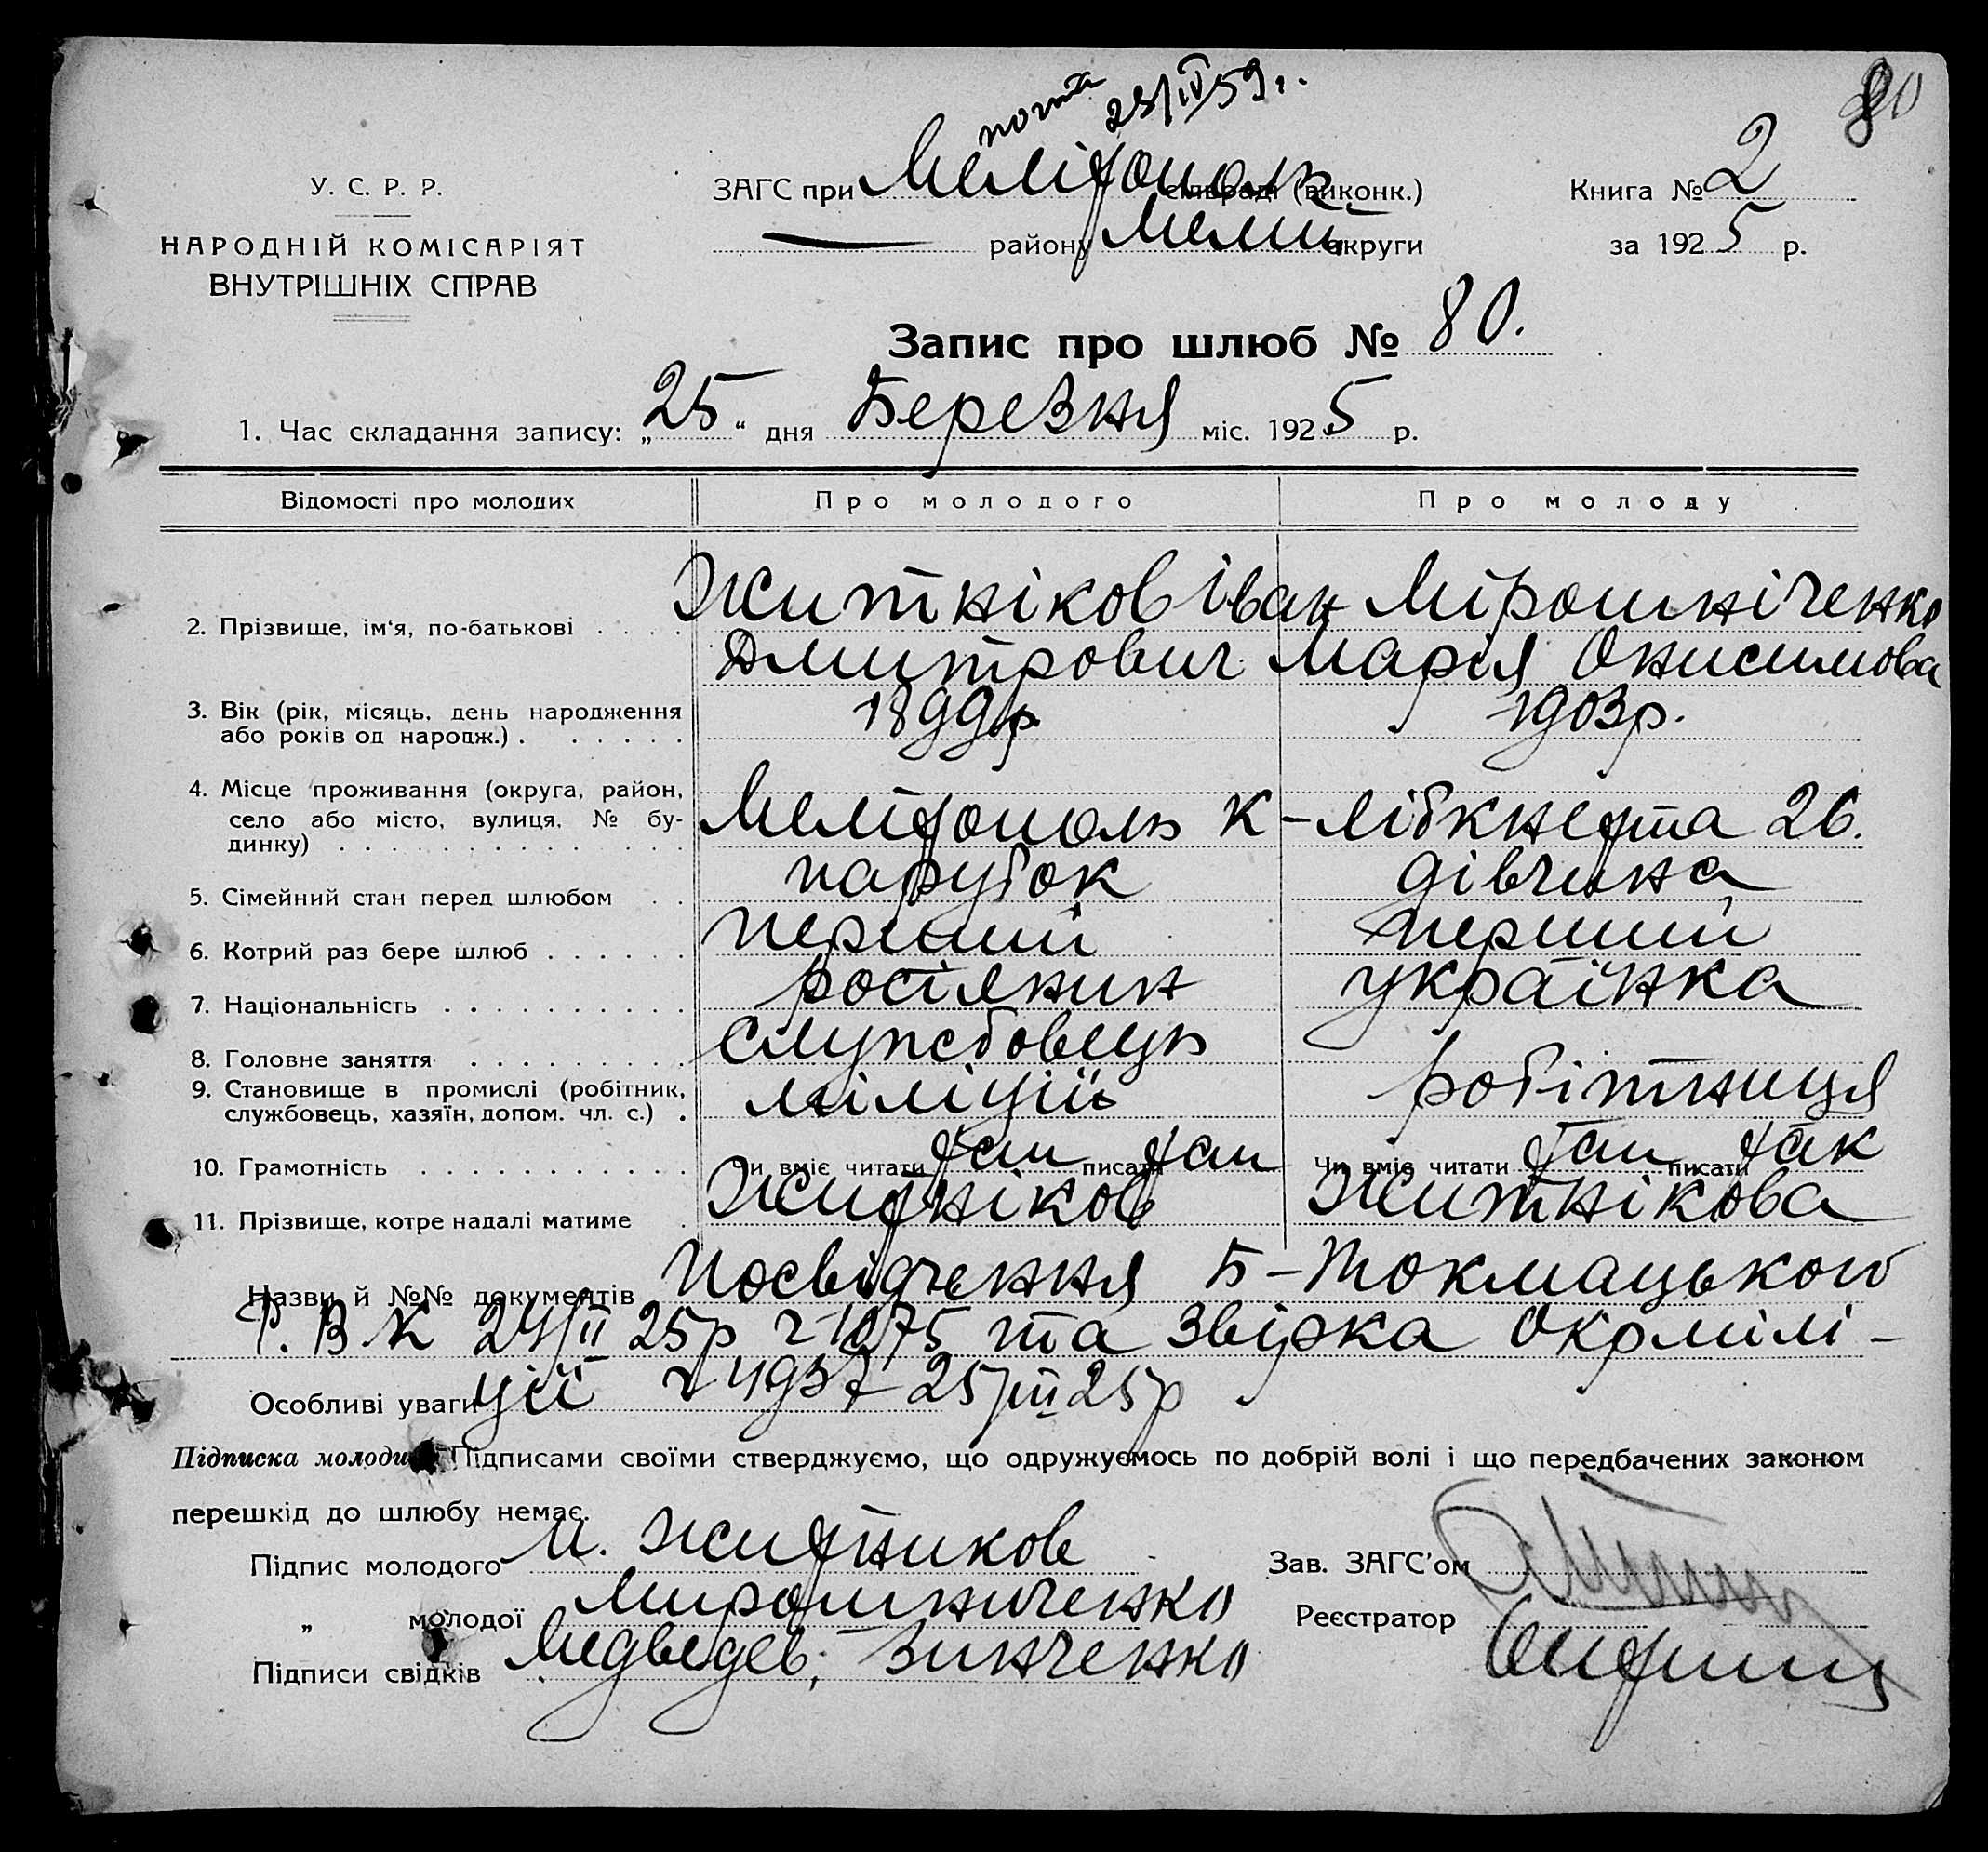 почта 23/IV 59 г.
80
У. С. Р. Р.
НАРОДНІЙ КОМІСАРІЯТ
ВНУТРІШНІХ СПРАВ
ЗАГС при Меліτополь сільраді (виконк.)
— району Меліт. округи
Книга № 2
за 1925 р.
Запис про шлюб № 80.
1. Час складання запису: „25“ дня Березня міс. 1925 р.
Відомості про молодих Про молодого Про молоду
2. Прізвище, ім'я, по-батькові . . . . Житніков Іван Мірошніченко
Дмитрович Марія Онисимова
3. Вік (рік, місяць, день народження 1899р 1903р.
або років од народж.) . . . . . .
4. Місце проживання (округа, район,
село або місто, вулиця, № бу- Мелітополь К-лібкнехта 26.
динку) . . . . . . . . . . . . . .
5. Сімейний стан перед шлюбом . . парубок дівчина
6. Котрий раз бере шлюб . . . . . . перший перший
7. Національність . . . . . . . . . . росіянин українка
8. Головне заняття . . . . . . . . . службовець
9. Становище в промислі (робітник, міліції робітниця
службовець, хазяїн, допом. чл. с.) .
10. Грамотність . . . . . . . . . . . Чи вміє читати так писати так Чи вміє читати так писати так
11. Прізвище, котре надалі матиме . Житніков Житнікова
Назви й №№ документів Посвідчення Б-Токмацького
Р. В К 24/II 25р ч 1075 та Звірка Окрмілі-
Особливі уваги ції ч 4937 25/III 25р
Підписка молодих Підписами своїми стверджуємо, що одружуємось по добрій волі і що передбачених законом
перешкід до шлюбу немає.
Підпис молодого И. Житников Зав. ЗАГС'ом
„ молодої Мирошниченко Реєстратор
Підписи свідків Медведев; Зинченко